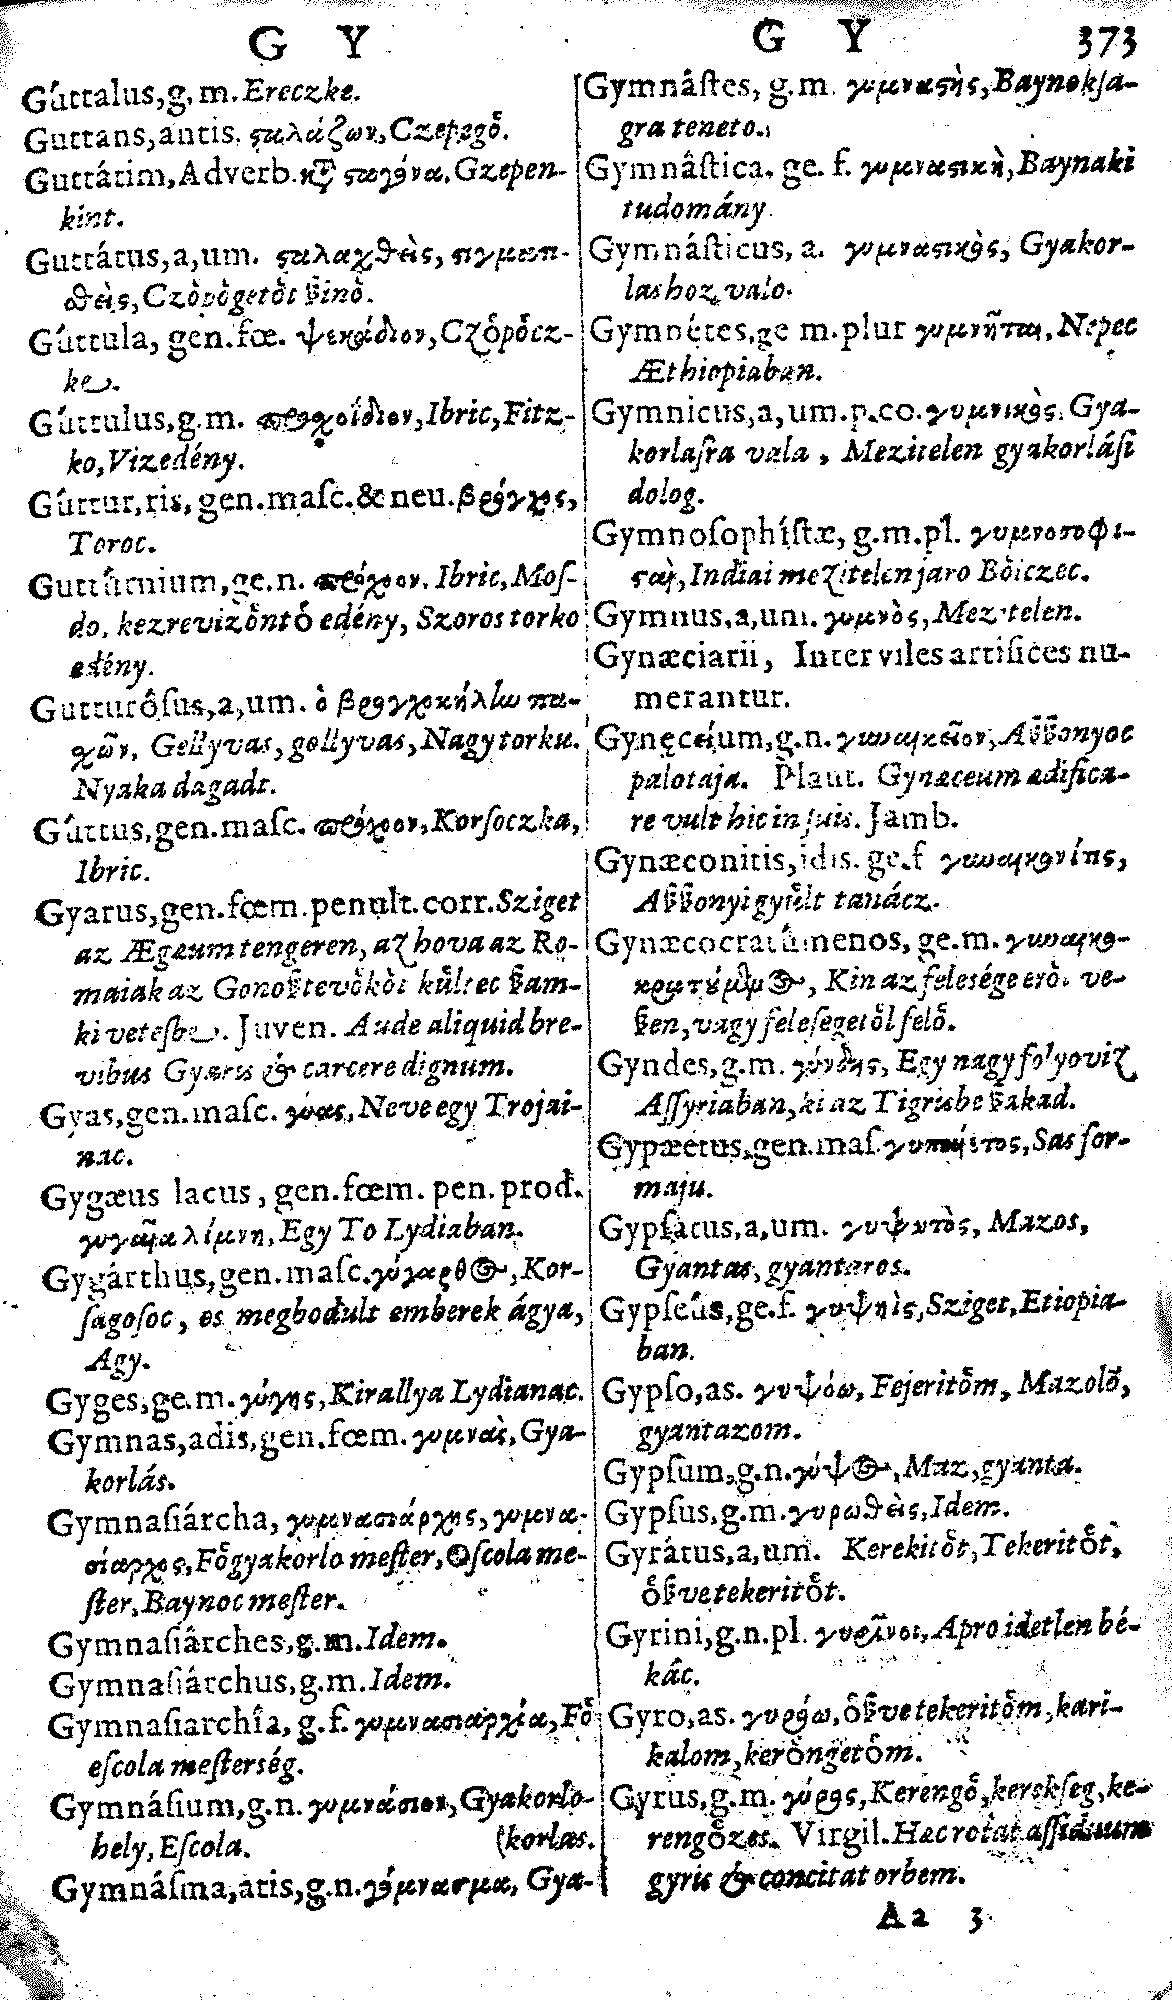 G Y
Gúttalus, g. m. Ereczke.
Guttans, antis. ςαλάζων, Czepegő.
Guttátim, Adverb. κτ̃ ςαγόνα, Czepen-
kint.
Guttátus, a, um. ςαλαχθεὶς, ςιγμαπ-
θεὶς, Czőpőgetőt ßinő.
Gúttula, gen. fœ. ψεκάδιον, Czőpőcz-
ke.
Gúttulus, g. m. προχοίδιον, Ibric, Fitz-
ko, Vizedény.
Gúttur, ris, gen. maſc. & neu. βρόγχος,
Toroc.
Guttúrnium, ge. n. πρόχοον. Ibric, Moſ-
do, kezrevizőntő edény, Szoros torko
edény.
Gutturôſus, a, um. ὁ βρογχοκήλω πα-
χῶν, Gellyvas, gollyvas, Nagy torku.
Nyaka dagadt.
Gúttus, gen. maſc. πρόχοον, Korſoczka,
Ibric.
Gyarus, gen. fœm. penult. corr. Sziget
az Ægeum tengeren, az hova az Ro-
maiak az Gonoßtevőkőt kűltec ßam-
ki vetesbe. Juven. Aude aliquid bre-
vibus Gyaris & carcere dignum.
Gyas, gen. maſc. γύας, Neve egy Trojai-
nac.
Gygæus lacus, gen. fœm. pen. prod.
γυγαῖα λίμνη, Egy To Lydiaban.
Gygárthus, gen. maſc. γύγαρθος, Kor-
ſagoſoc, es megbodult emberek ágya,
Agy.
Gyges, ge. m. γύγης, Kirallya Lydianac.
Gymnas, adis, gen. fœm. γυμνὰς, Gya-
korlás.
Gymnaſiárcha, γυμνασιάρχης, γυμνα-
σίαρχος, Főgyakorlo meſter, Oſcola me-
ſter, Baynoc meſter.
Gymnaſiârches, g. m. Idem.
Gymnaſiárchus, g. m. Idem.
Gymnaſiarchîa, g. f. γυμνασιαρχία, Fő
eſcola meſterség.
Gymnásium, g. n. γυμνάσιον, Gyakorlo-
hely, Eſcola. (korlas.
Gymnáſma, atis, g. n. γύμνασμα, Gya-
G Y 373
Gymnâſtes, g. m. γυμναςὴς, Baynokſa-
gra teneto.
Gymnâſtica. ge. f. γυμναςικὴ, Baynaki
tudomány.
Gymnáſticus, a. γυμναςικὸς, Gyakor-
lashoz valo.
Gymnétes, ge m. plur γυμνῆται, Nepec
Æthiopiaban.
Gymnicus, a, um. p. co. γυμνικὸς. Gya-
korlaſra vala, Mezitelen gyakorláſi
dolog.
Gymnoſophíſtæ, g. m. pl. γυμνοσοφι-
ςαὶ, Indiai mezitelen jaro Bőlczec.
Gymnus, a, um. γυμνὸς, Mez'telen.
Gynæciarii, Inter viles artifices nu-
merantur.
Gynęceíum, g. n. γυναικεῖον, Aßßonyoc
palotaja. Plaut. Gynaceum adifica-
re vult hic in ſuis. Jamb.
Gynæconitis, idis. ge. f γυναικονίτις,
Aßßonyi gyűlt tanácz.
Gynæcocratúmenos, ge. m. γυναικο-
κρατύμενος, Kin az feleségeerőt ve-
ßen, vagy feleſegetől felő.
Gyndes, g. m. γύνδης, Egy nagy folyoviz
Aſſyriaban, ki az Tigrisbe ßakad.
Gypæetus, gen. maſ γυπαίετος, Sas for-
maju.
Gypſatus, a, um. γυψατὸς, Mazos,
Gyantas, gyantaros.
Gypſeûs, ge. f. γυψηὶς, Sziget, Etiopia-
ban.
Gypſo, as. γυψόω, Fejeritőm, Mazolő,
gyantazom.
Gypſum, g. n. γύψος, Maz, gyanta.
Gypſus, g. m. γυρωθεὶς, Idem.
Gyrátus, a, um. Kerekitőt, Tekeritőt,
őßvetekeritőt.
Gyrini, g. n. pl. γυρῖνοι, Apro idetlen bé-
kâc.
Gyro, as. γυρόω, őßvetekeritőm, kari-
kalom, kerőngetőm.
Gyrus, g. m. γύρος, Kerengő, kerekſeg, ke-
rengőzes. Virgil. Hac rotat aſſiduum
gyris & concitat orbem.
Aa 3